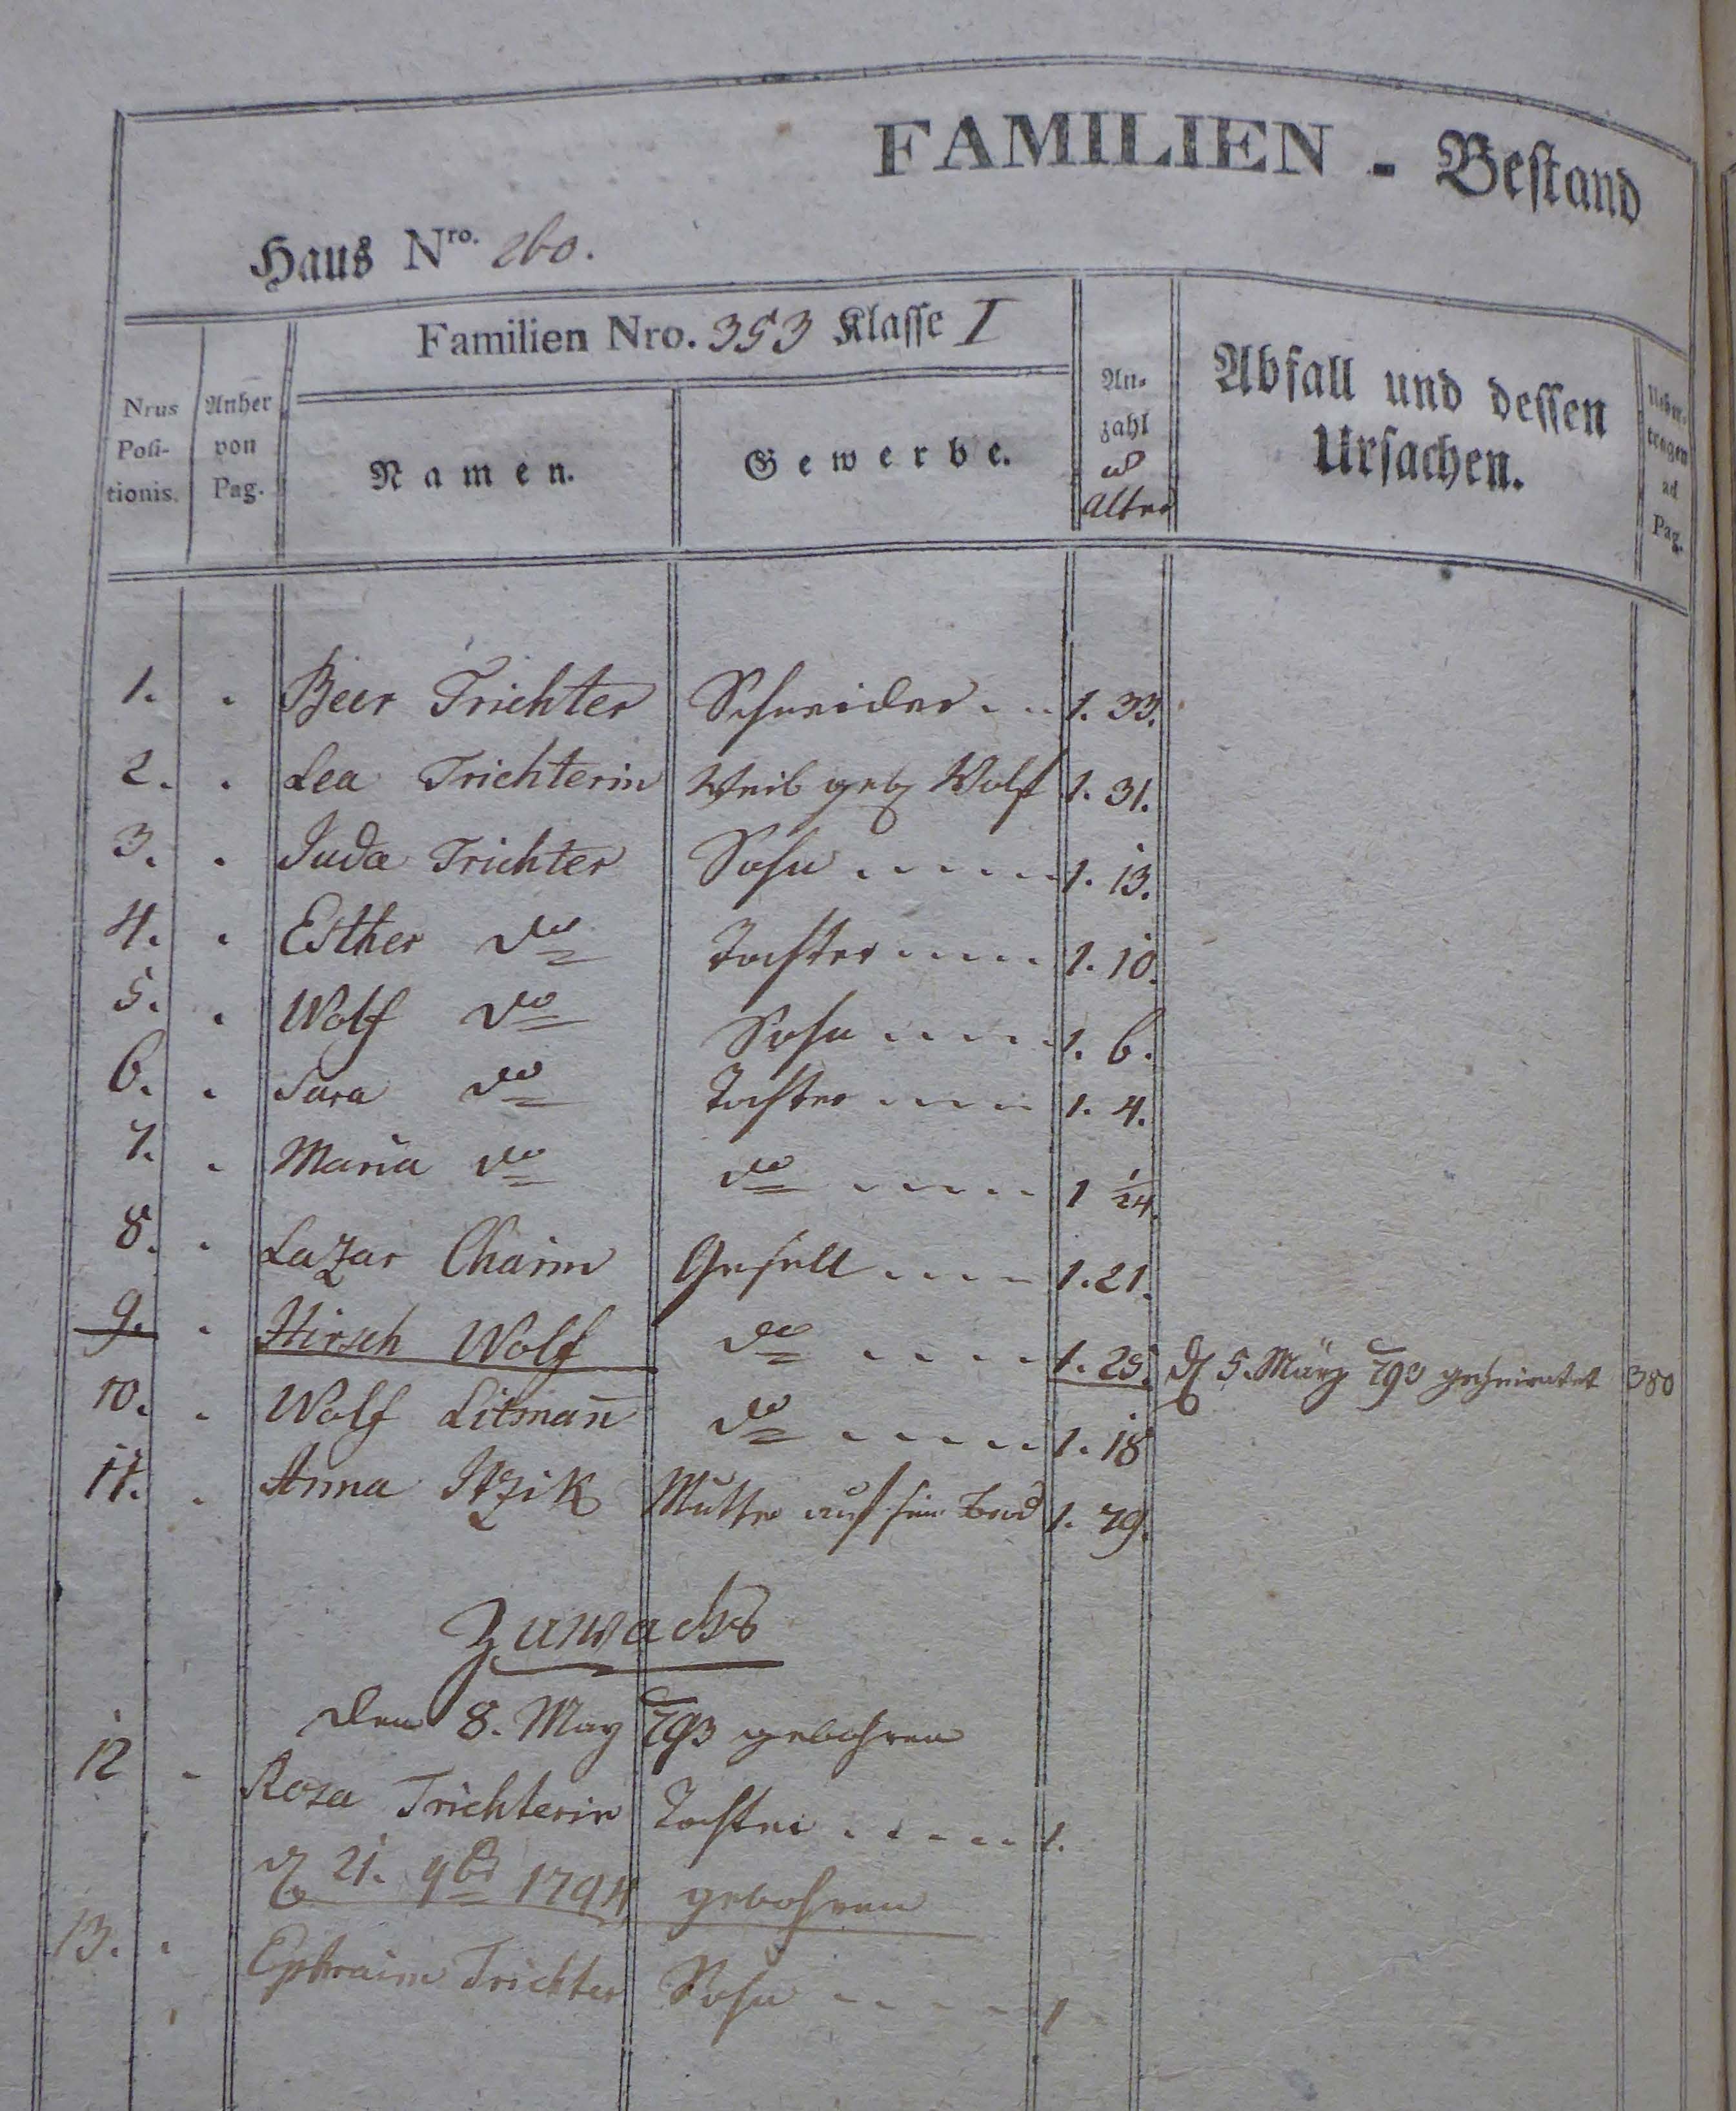 FAMILIEN - Bestand
Haus Nro. 260.
Familien Nro. 353 Klasse I
Nrus Positionis.
Anher von Pag.
Namen.
Gewerbe.
Anzahl
Alter
Abfall und dessen Ursachen.
Uebertragen ad Pag.
1. Beer Trichter Schneider 1. 33.
2. Lea Trichterin Weib geb Wolf 1. 31.
3. Juda Trichter Sohn 1. 13.
4. Esther do Tochter 1. 10.
5. Wolf do Sohn 1. 6.
6. Sara do Tochter 1. 4.
7. Maria do do 1 1/24.
8. Lazar Chaim Gesell 1. 21.
9. Hirsch Wolf do 1. 25. d 5. März 793 geheiratet 380
10. Wolf Litmañ do 1. 18
11. Anna Itzik Mutter auf sein Brod 1. 79.
Zuwachs
den 8. May 793 gebohren
12 Rosa Trichterin Tochter 1.
d 21. 9br 1794 gebohren
13. Ephraim Trichter Sohn 1